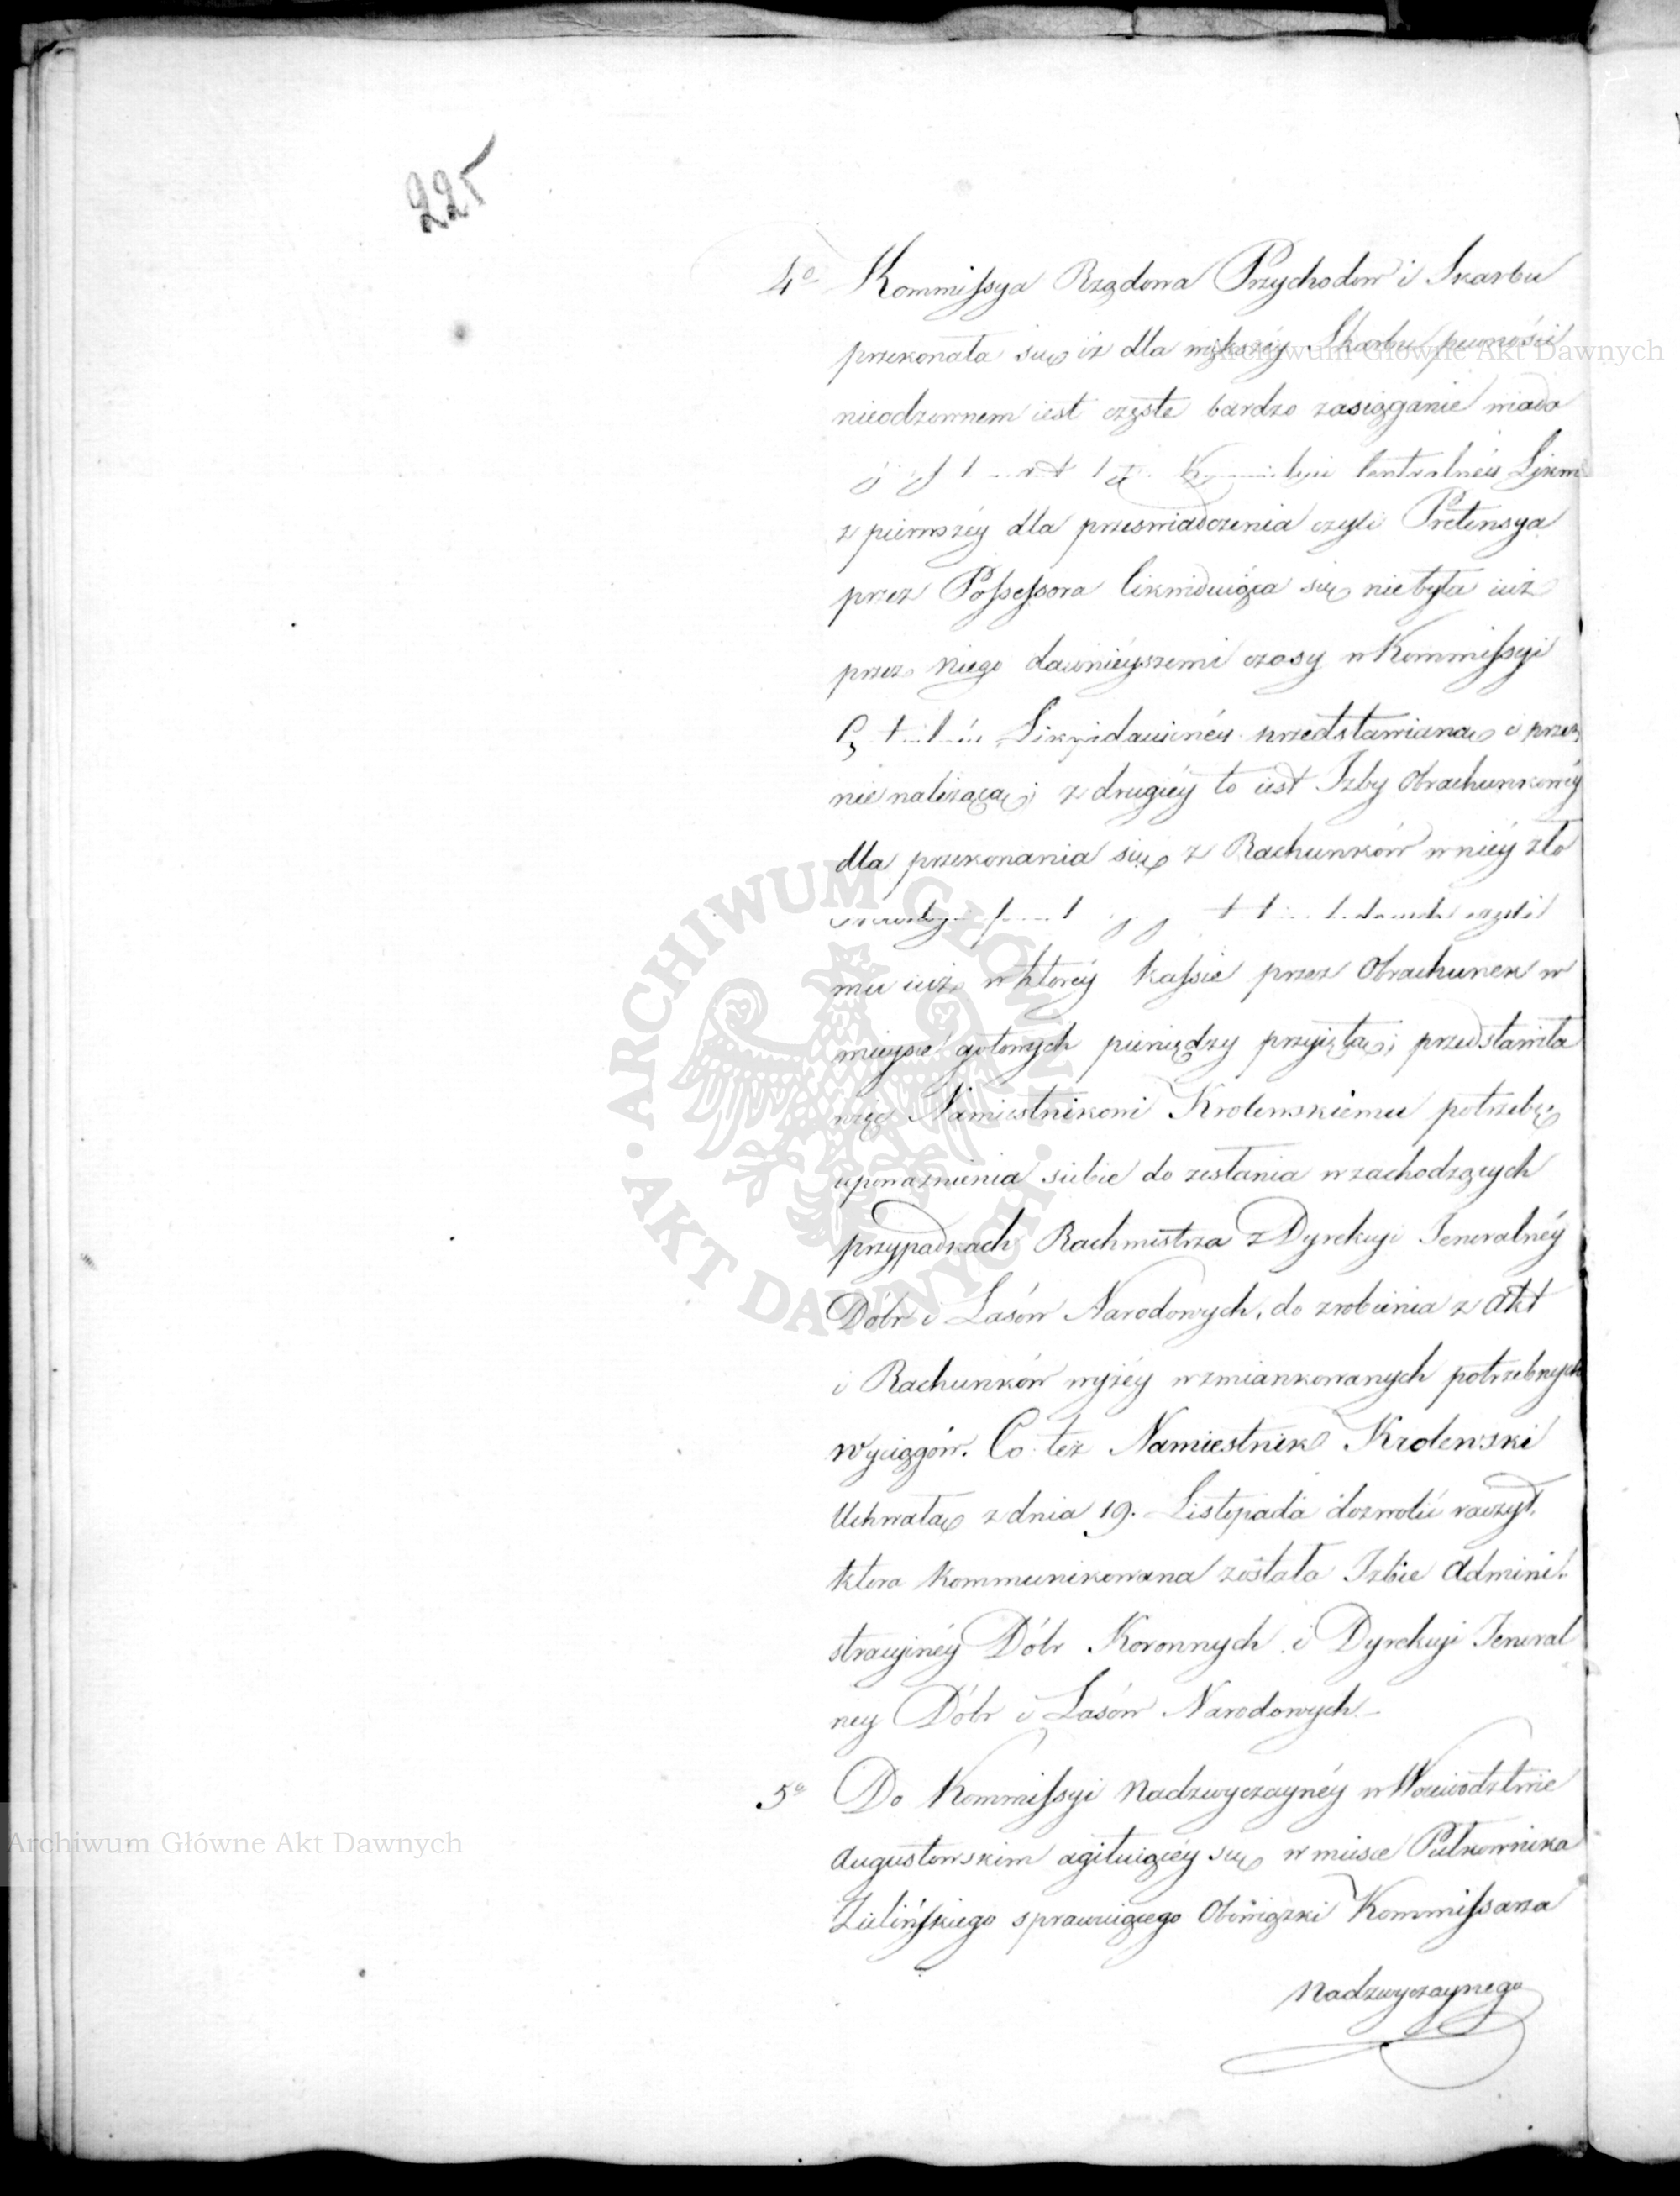 225
4o Kommissya Rządowa Przychodow i Skarbu
przekonała się iż dla większéy Skarbu pewności
nieodzownem iest częste bardzo zasiąganie wiado
Centralnéy Likwi
z pierwszéy dla przeswiadczenia czyli Pretensya
przez Possessora likwiduiąca się nie była iuż
przez niego dawnieyszemi czasy w Kommissyi
Likwidacyinéy przedstawianą i przez
nie należącą; z drugiéy to iest Izby Obrachunkowéy
dla przekonania się z Rachunków w niéy zło
czyli
mu iuż w któréy kassie przez Obrachunek w
mieysce gotowych pieniędzy przyiętą; przedstawiła
więc Namiestnikowi Krolewskiemu potrzebę
upoważnienia siebie do zesłania w zachodzących
przypadkach Rachmistrza z Dyrekcyi Jeneralnéy
Dóbr i Lasów Narodowych, do zrobienia z Akt
i Rachunków wyżéy wzmiankowanych potrzebnych
Wyciągów. Co też Namiestnik Krolewski
Uchwałą z dnia 19. Listopada dozwolić raczył,
ktora kommunikowana została Izbie Admini-
stracyinéy Dóbr Koronnych i Dyrekcyi Jeneral
ney Dóbr i Lasów Narodowych
5o Do Kommissyi Nadzwyczaynéy w Woiewodztwie
Augustowskim agituiącéy się w mieysce Pułkownika
Zielińskiego sprawuiącego Obowiązki Kommissarza
Nadzwyczaynego
Archiwum Główne Akt Dawnych
Archiwum Główne Akt Dawnych
ARCHIWUM GŁÓWNE AKT DAWNYCH